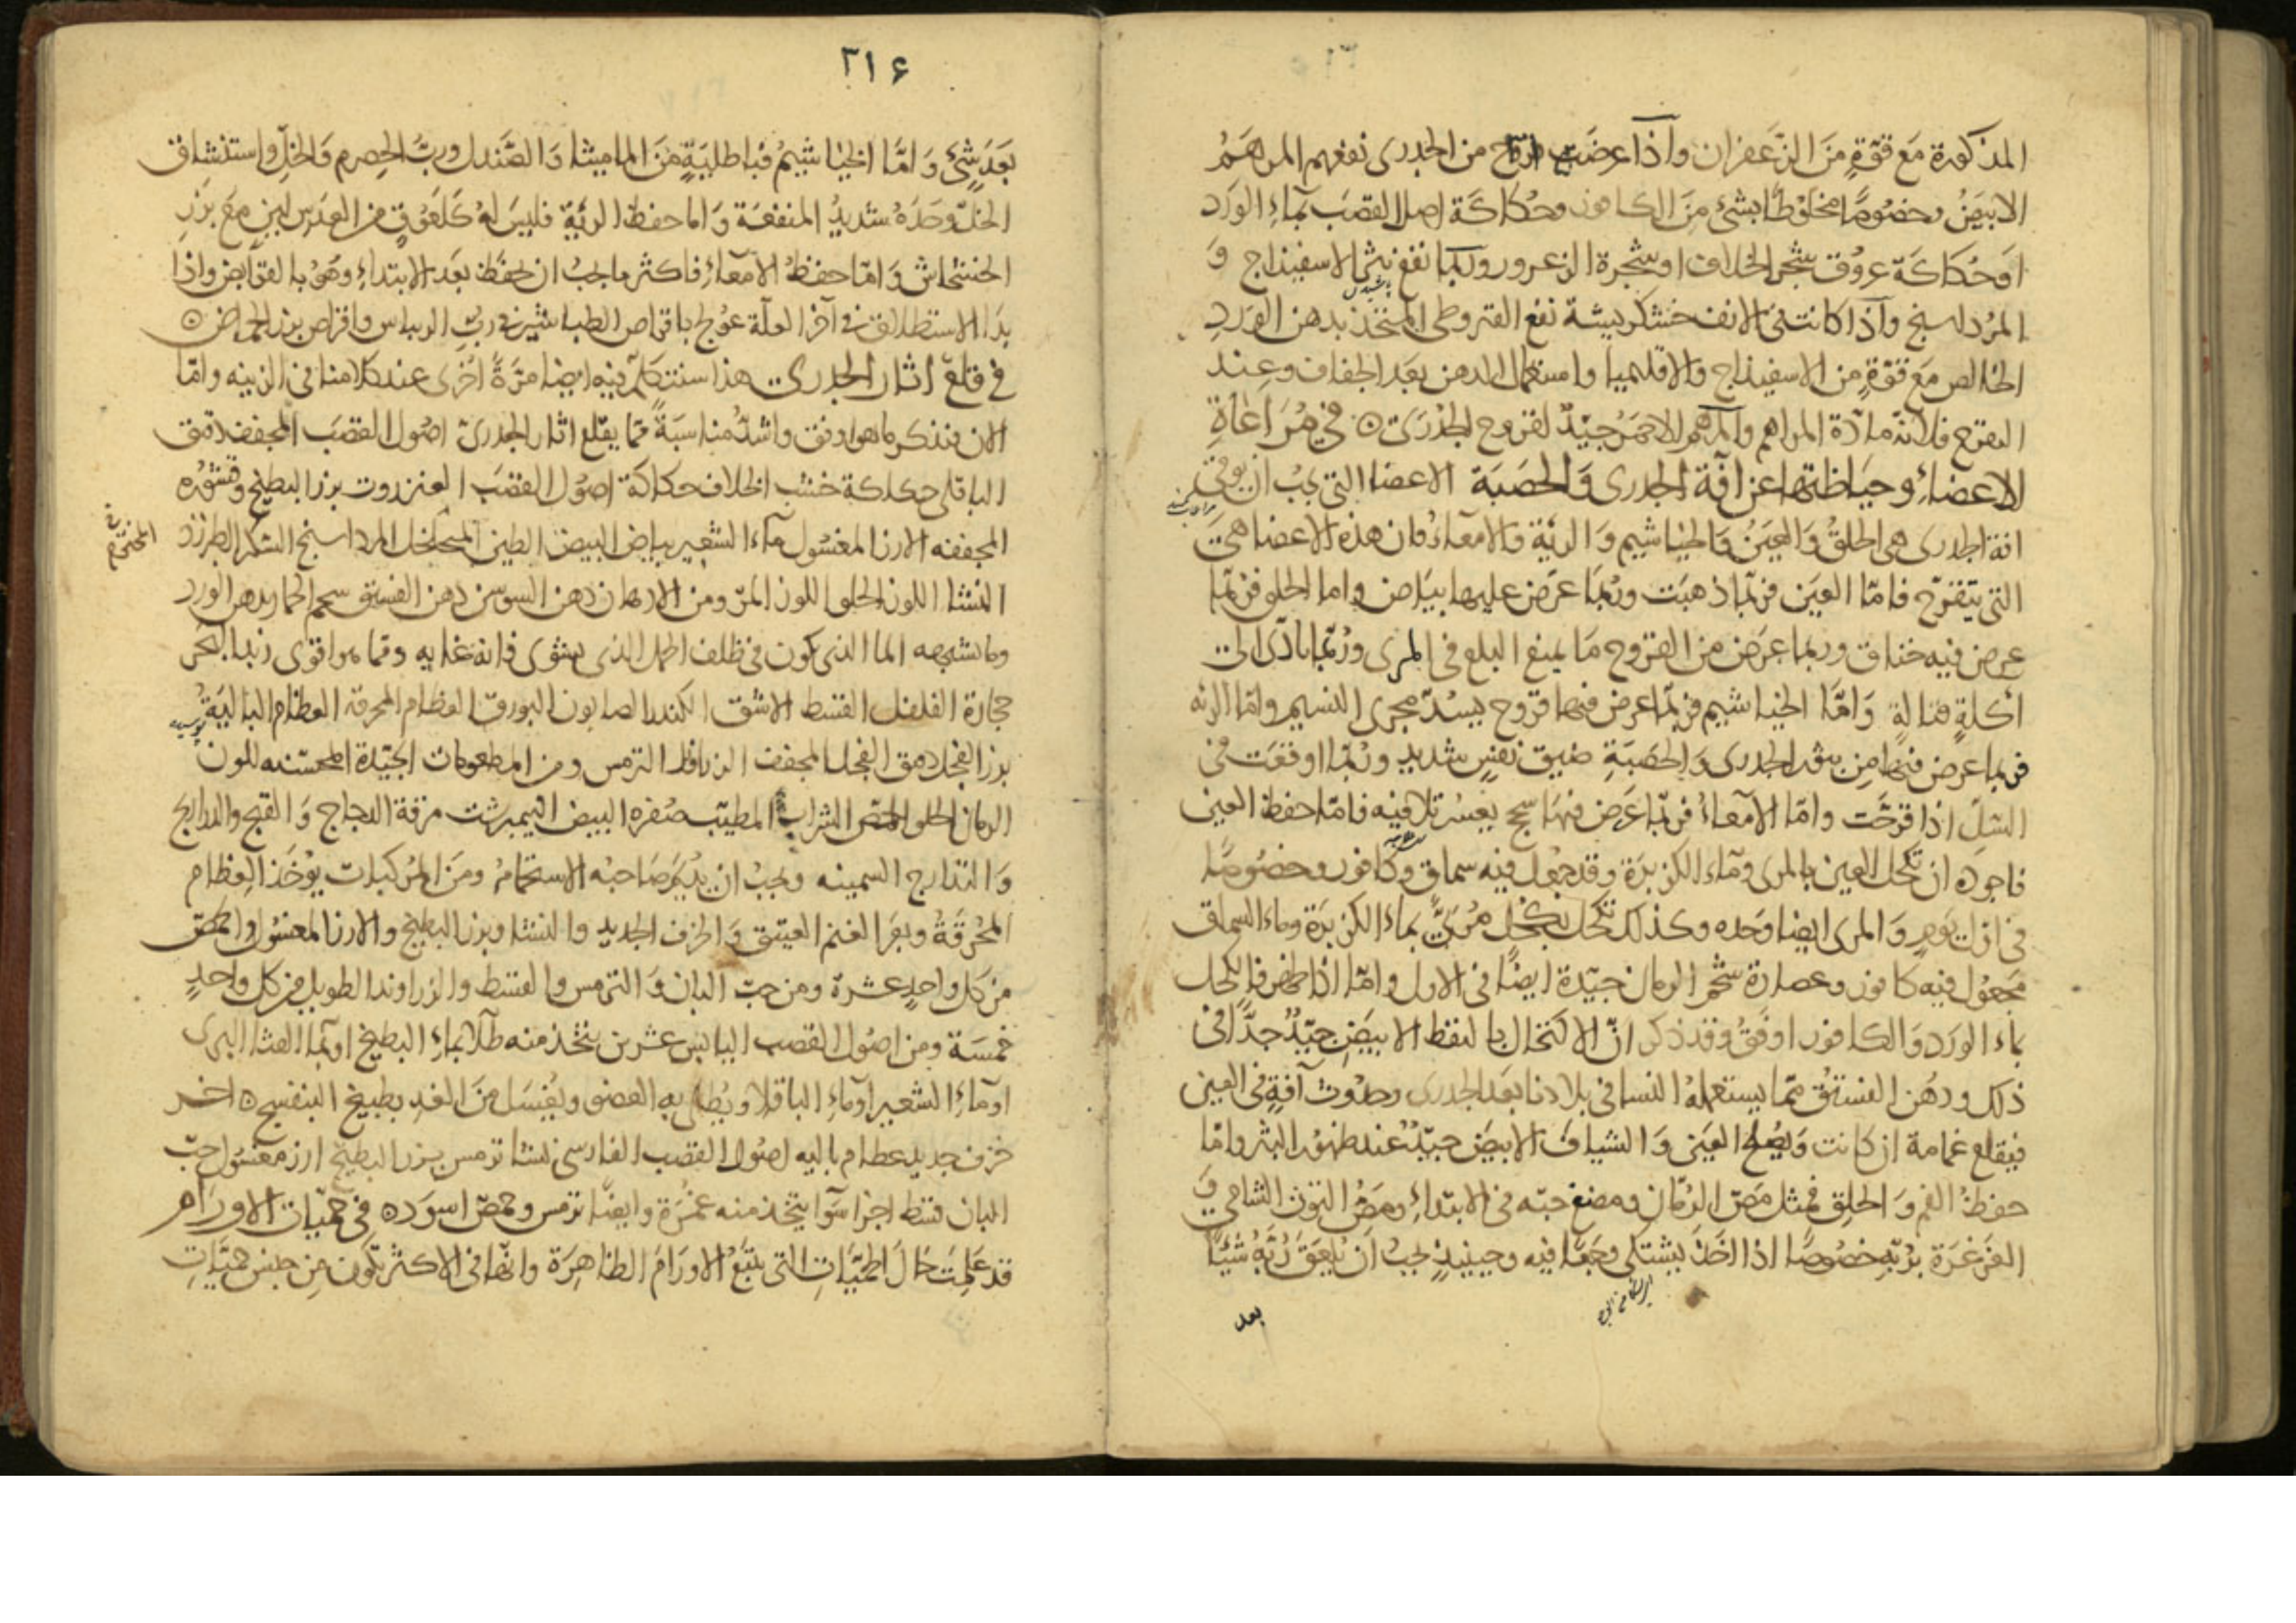 المذكورة مَع قوّةٍ مِنَ الزَّعفران وآذا عرضَت قروح من الجدرى نفعهم المرهَمُ
الابيَضُ وخصُوصًا مخلوطًا بشئٍ مِنَ الكافور وحُكاكَة اصل القصَب بمآءِ الورَد
اوَحُكاكَة عروُق شجر الخلاف اوشجرة الزعرور وربما نفع نثر الاسفيذاج وَ
المرُداسنج وآذا كانت فى الانف خشكريشة نفع القيروطى المتخذ بدهن الورَدِ
الخالص مَع قوّةٍ من الاسفيذاج والاقليميا وامستعمال الدهن بعَد الجفاف وعِند
التقرح فلانه مادّة المراهم والمرهم الاحمَرُ جيّدٌ لقروح الجدرَى ه فى مُرَاعَاةِ
الاعضاءِ وحيَاطتها عن آفة الجدرى وَالحصَبَة الاعضا التى يجبُ ان يوقى
افة الجدرى هى الحلقُ وَالعيَنُ وَالخيَاشيم وَالرئَة وَالامعَاءُ فان هذه الاعضا هىَ
التى يتقرّح فامّا العيَن فربّما ذهبَت ورُبمَا عرَض عليها بيَاض واما الحلق فربمَّا
عرض فيه خناق وربما عرَض من القروح مَا يمنع البلع فى المرى ورُبّما ادّى الى
اكلةٍ قتالةٍ وَامَّا الخياشيم فربّما عرض فيها قروح يسُدّ مجرى النسيم وامّا الرئه
فربما عرض فيها مِن بثر الجدرى وَالحصَبَةِ ضيق نفسٍ شديدٍ ورُبّما اوقعَت فى
السّلِ اذا قرحَت وامّا الامعاءُ فربّما عرَض فيهَا سحج يعسُر تلافيه فامّا حفظ العين
فاجوده ان تكحل العين بالمرى ومآء الكزبرَة وقد جعُل فيه سماق وكافور وخصُوصًا
فى اوّل يَومٍ وَالمرى ايضا وَحده وكذلك تكحل بكحُل مرُبَّىً بماء الكزبرَة وماء السماق
مجعُول فيه كافور وعصارة شحم الرمان جيّدة ايضًا فى الاول وامّا اذا ظهر فالكحل
بماء الورَد وَالكافور اوفَقُ وقد ذكر انّ الاكتحال بالنفط الابيَض جيّدٌ جدًّا فى
ذلك ودهُن الفستق ممّا يستعملهُ النسا فى بلادنا بعَد الجدرى وحدُوث آفةٍ فى العين
فيقلع غمامة ان كانت وَيصُلح العيَن وَالشيافُ الابيَض جيّدٌ عند ظهوُر البثر وامّا
حفظُ الفم وَالحلِق فمثل مَصّ الرمّان ومضغ حبّه فى الابتداءِ ومَصُّ التوُث الشامى وَ
الغَرغَرَة برُبّهِ خصُوصًا اذا اخَذَ يشتكى وجَعًا فيه وحينيذٍ يجبُ اَن يُلعَقَ رُبَّهُ شيَئًا
بعد
٣١٤
بَعَدَ شئٍ وَامَّا الخيَاشيمُ فباطليَةٍ مِنَ الماميثا وَالصَّندل وربُّ الحِصرم وَالخلّ واستنشاق
الخلّ وحَدَهُ شديدُ المنفعَة وَاما حفظ الرئَة فليسَ لهُ كلَعُوقٍ من العدَس لين مَعَ بزَر
الخشخاش وَامّا حفظُ الامعَاءِ فاكثر ما يجبُ ان يحفَظ بعَد الابتداءِ وهوُ بالقوابض واذا
بدَا الاستطلاق فى آخر العلّة عوُلج باقراص الطباشير فى ربّ الريباس واقراص بزر الحماض ه
فى قلع اثار الجدرى هذا سنتكلم فيه ايضا مرّةً اخُرى عند كلامنا فى الزينه وامّا
الان فنذكر ما هو اوفق واشدُّ منُاسبَةً ممّا يقلع اثار الجدرىّ اصُول القصَب المجفف دقيق
الباقلى حكاكة خشب الخلاف حكاكَة اصُول القصَب العنزروت بزر البطيخ وقشوُره
المجففه الارز المغسُول مآء الشعير بياض البيض الطين المرداسنج السكر الطبرزد
النشا اللوز الحلو اللوز المرّ ومن الادهان دهن السوسن دهن الفستق شحم الحمار ودهن الورد
وما يشبهه الما الذى يكون فى ظلف الحمل الذى يشوى فانه غايه وممّا هو اقوى زبد البحر
حجَارة الفلفل القسط الاشق الكندر الصابون البورق العظام المحرقة العظام الباليَةُ
بزر الفجل دقيق الفجل المجفف الزراوند الترمس ومن المطعومات الجيّدة المحسّنه للون
الرمان الحلو الحمّص الشراب المطيّب صُفره البيض النيمبرشت مرقة الدجاج وَالقبج والدراريج
وَالتدارج السمينه ويجبُ ان يدُيَم صَاحبُه الاستحمَام ومنَ المركبات يوُخَذ العِظام
المحُرقَةُ وبعَر الغنم العتيق وَالخزف الجديد والنشا وبزر البطيخ والارز المغسُول والحمّص
من كل واحدٍ عشرة ومن حبّ البان وَالترمس والقسط والزراوند الطويل من كل واحدٍ
خمسَة ومن اصُول القصب اليابس عشرين يتخذ منه طلاءً بمآءِ البطيخ اوبمآ القثا البرى
اوماءِ الشعير اومآءِ الباقلا ويُطلى به العضو ويُغسَل مِنَ الغَدِ بطبيخ البنفسج ه اخر
خزف جديد عظام باليه اصُول القصب الفارسى نشا ترمس بزر البطيخ ارز مغسُول حبّ
البان قسط اجزا سَوَآ يتّخذ منه غمُرَة وايضًا ترمس وحمصّ اسوَد ه فى حمّيات الاورَام
قد عَلِمتَ حَالَ الحمّيَاتِ التى يتبَعُ الاورَامَ الظاهِرَة وانّها فى الاكثر تكون مِن جنس حميَّاتِ